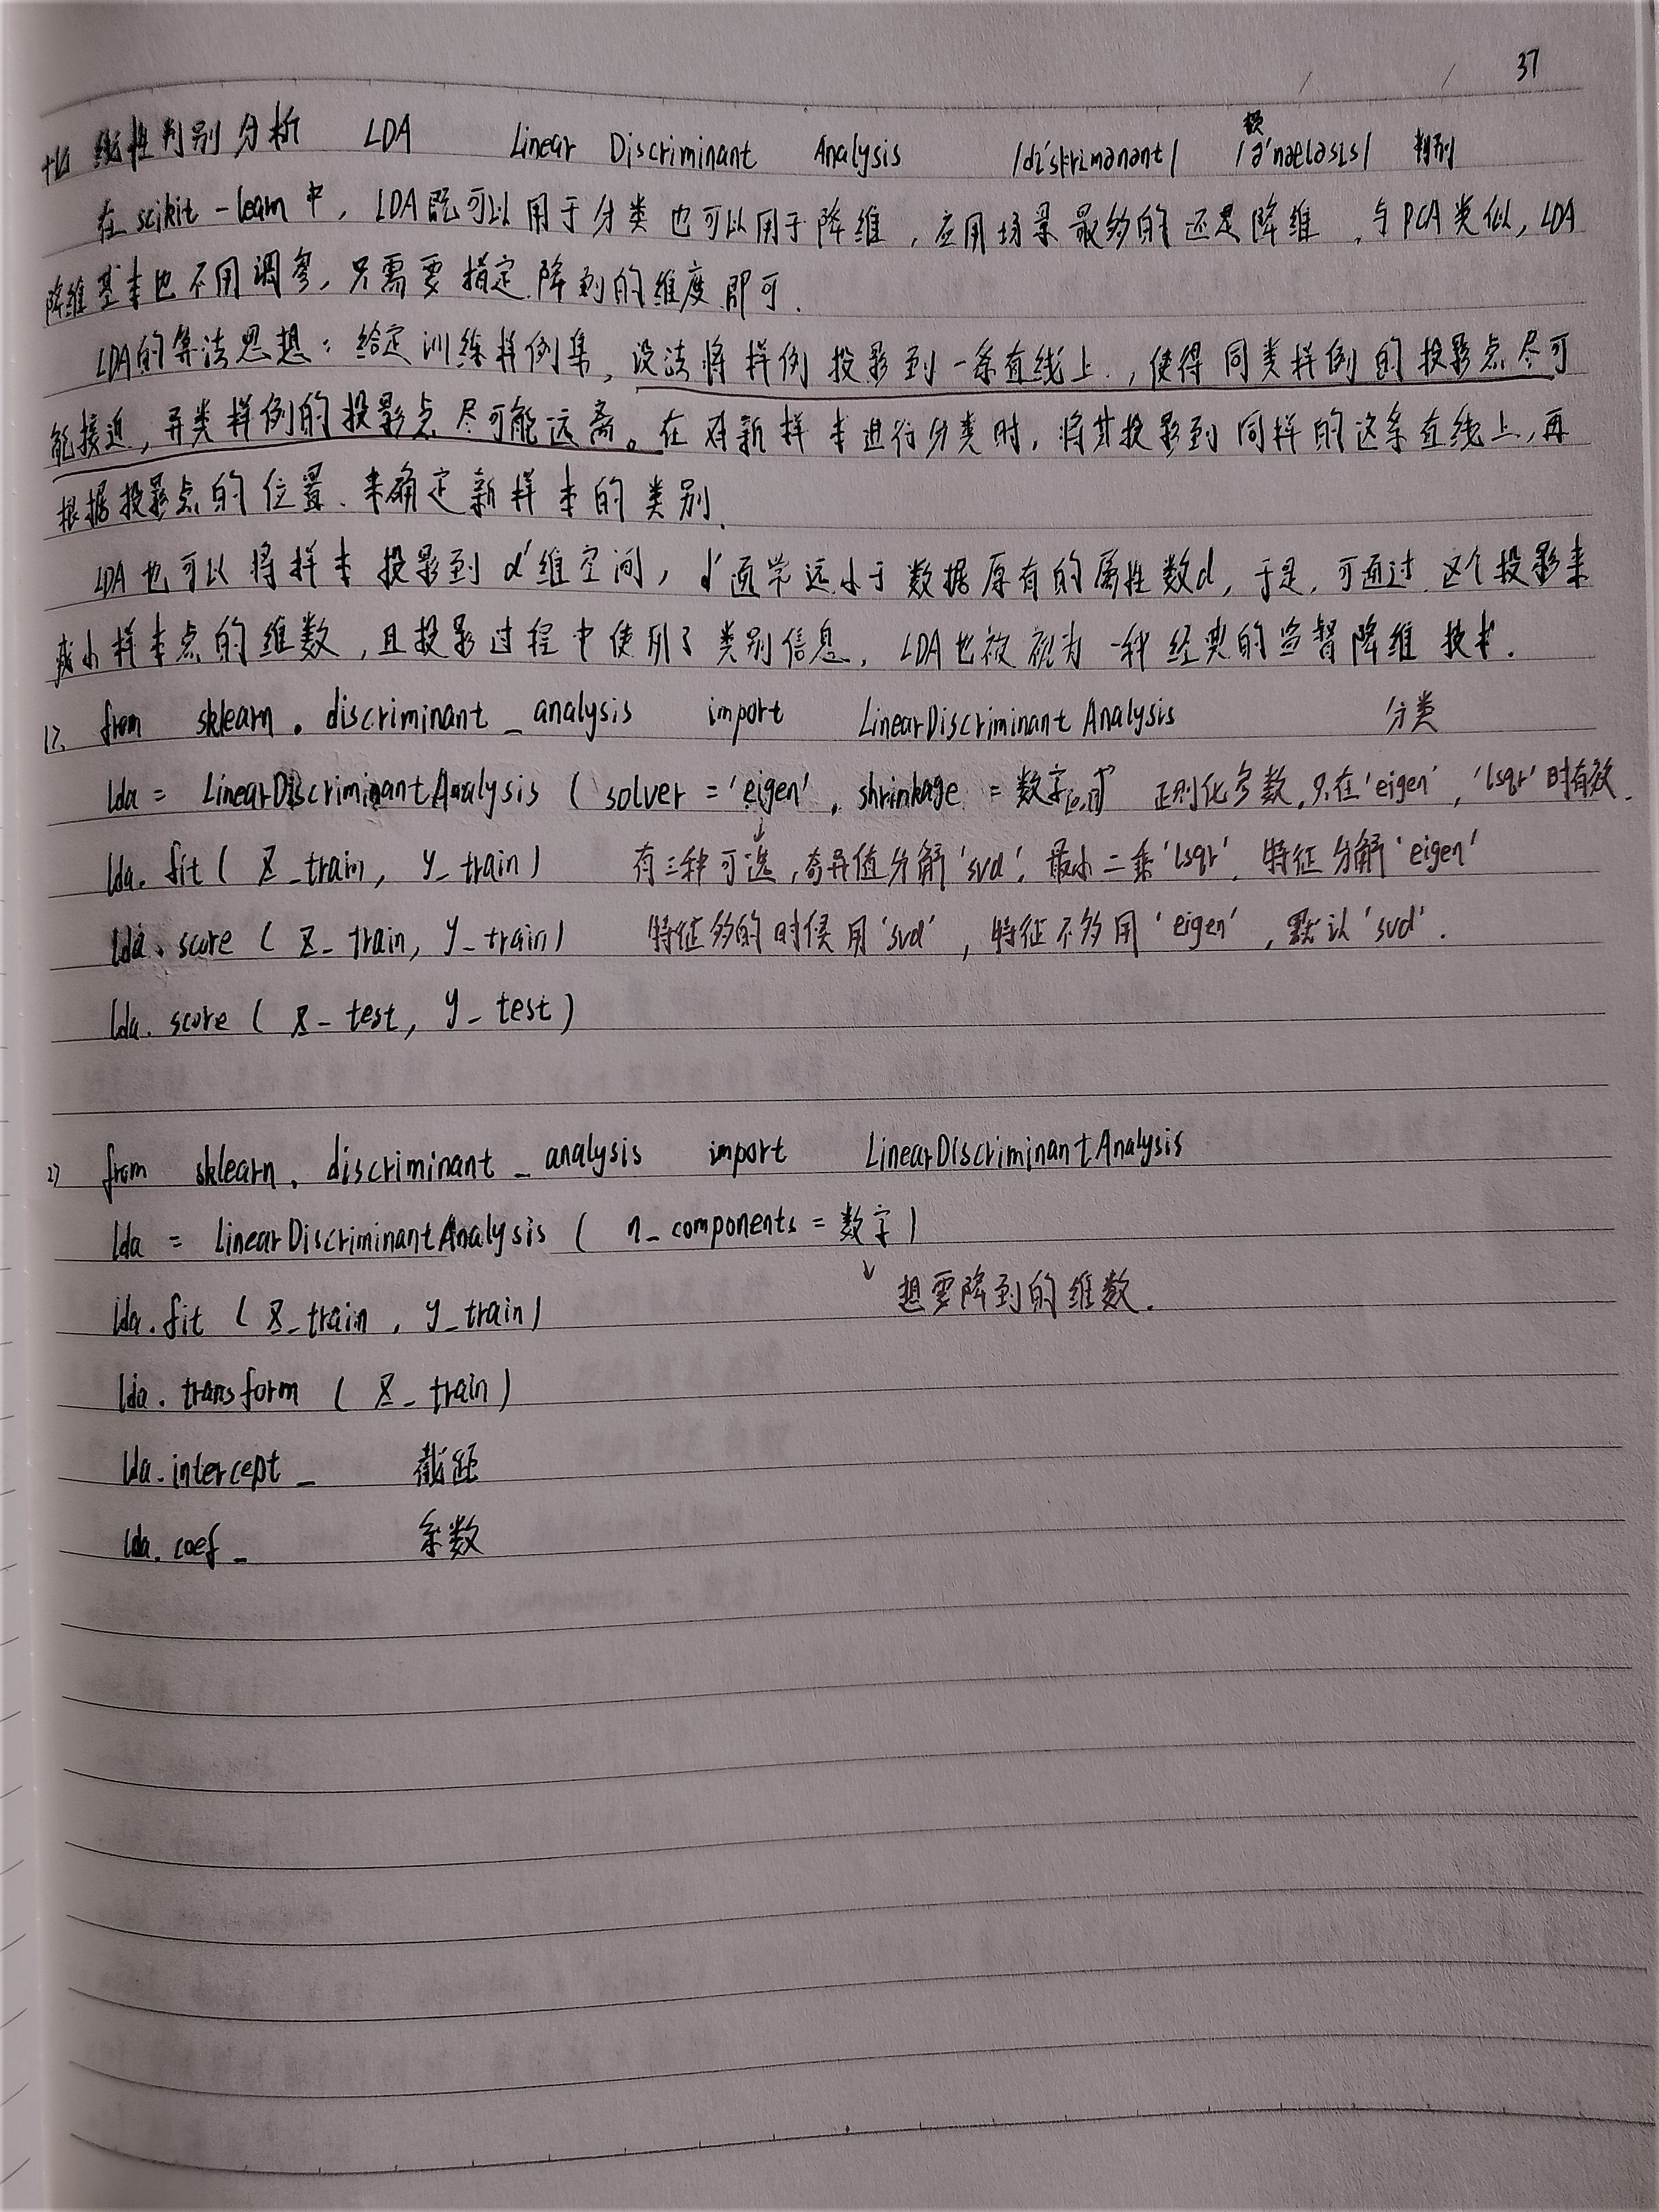 37
线性判别分析 LDA Linear Discriminant Analysis /di'skrimənənt/ /ə'næləsis/ 判别
在 scikit-learn 中, LDA 既可以用于分类也可以用于降维, 应用场景最多的还是降维, 与PCA类似, LDA
降维基本也不用调参, 只需要指定降到的维度即可.
LDA的算法思想: 给定训练样例集, 设法将样例投影到一条直线上, 使得同类样例的投影点尽可
能接近, 异类样例的投影点尽可能远离。在对新样本进行分类时, 将其投影到同样的这条直线上, 再
根据投影点的位置、来确定新样本的类别.
LDA也可以将样本投影到d'维空间, d'通常远小于数据原有的属性数d, 于是, 可通过这个投影来
减小样本点的维数, 且投影过程中使用了类别信息, LDA也被视为一种经典的监督降维技术.
1> from sklearn.discriminant_analysis import LinearDiscriminantAnalysis 分类
lda = LinearDiscriminantAnalysis ( solver = 'eigen', shrinkage = 数字[0,1]) 正则化参数, 只在'eigen', 'lsqr'时有效.
lda.fit ( X_train, y_train) 有三种可选, 奇异值分解'svd', 最小二乘'lsqr', 特征分解'eigen'
lda.score ( X_train, y_train) 特征多的时候用'svd', 特征不多用'eigen', 默认'svd'.
lda.score ( X_test, y_test)
2> from sklearn.discriminant_analysis import LinearDiscriminantAnalysis
lda = LinearDiscriminantAnalysis ( n_components = 数字)
↓ 想要降到的维数.
lda.fit ( X_train, y_train)
lda.transform ( X_train)
lda.intercept_ 截距
lda.coef_ 系数